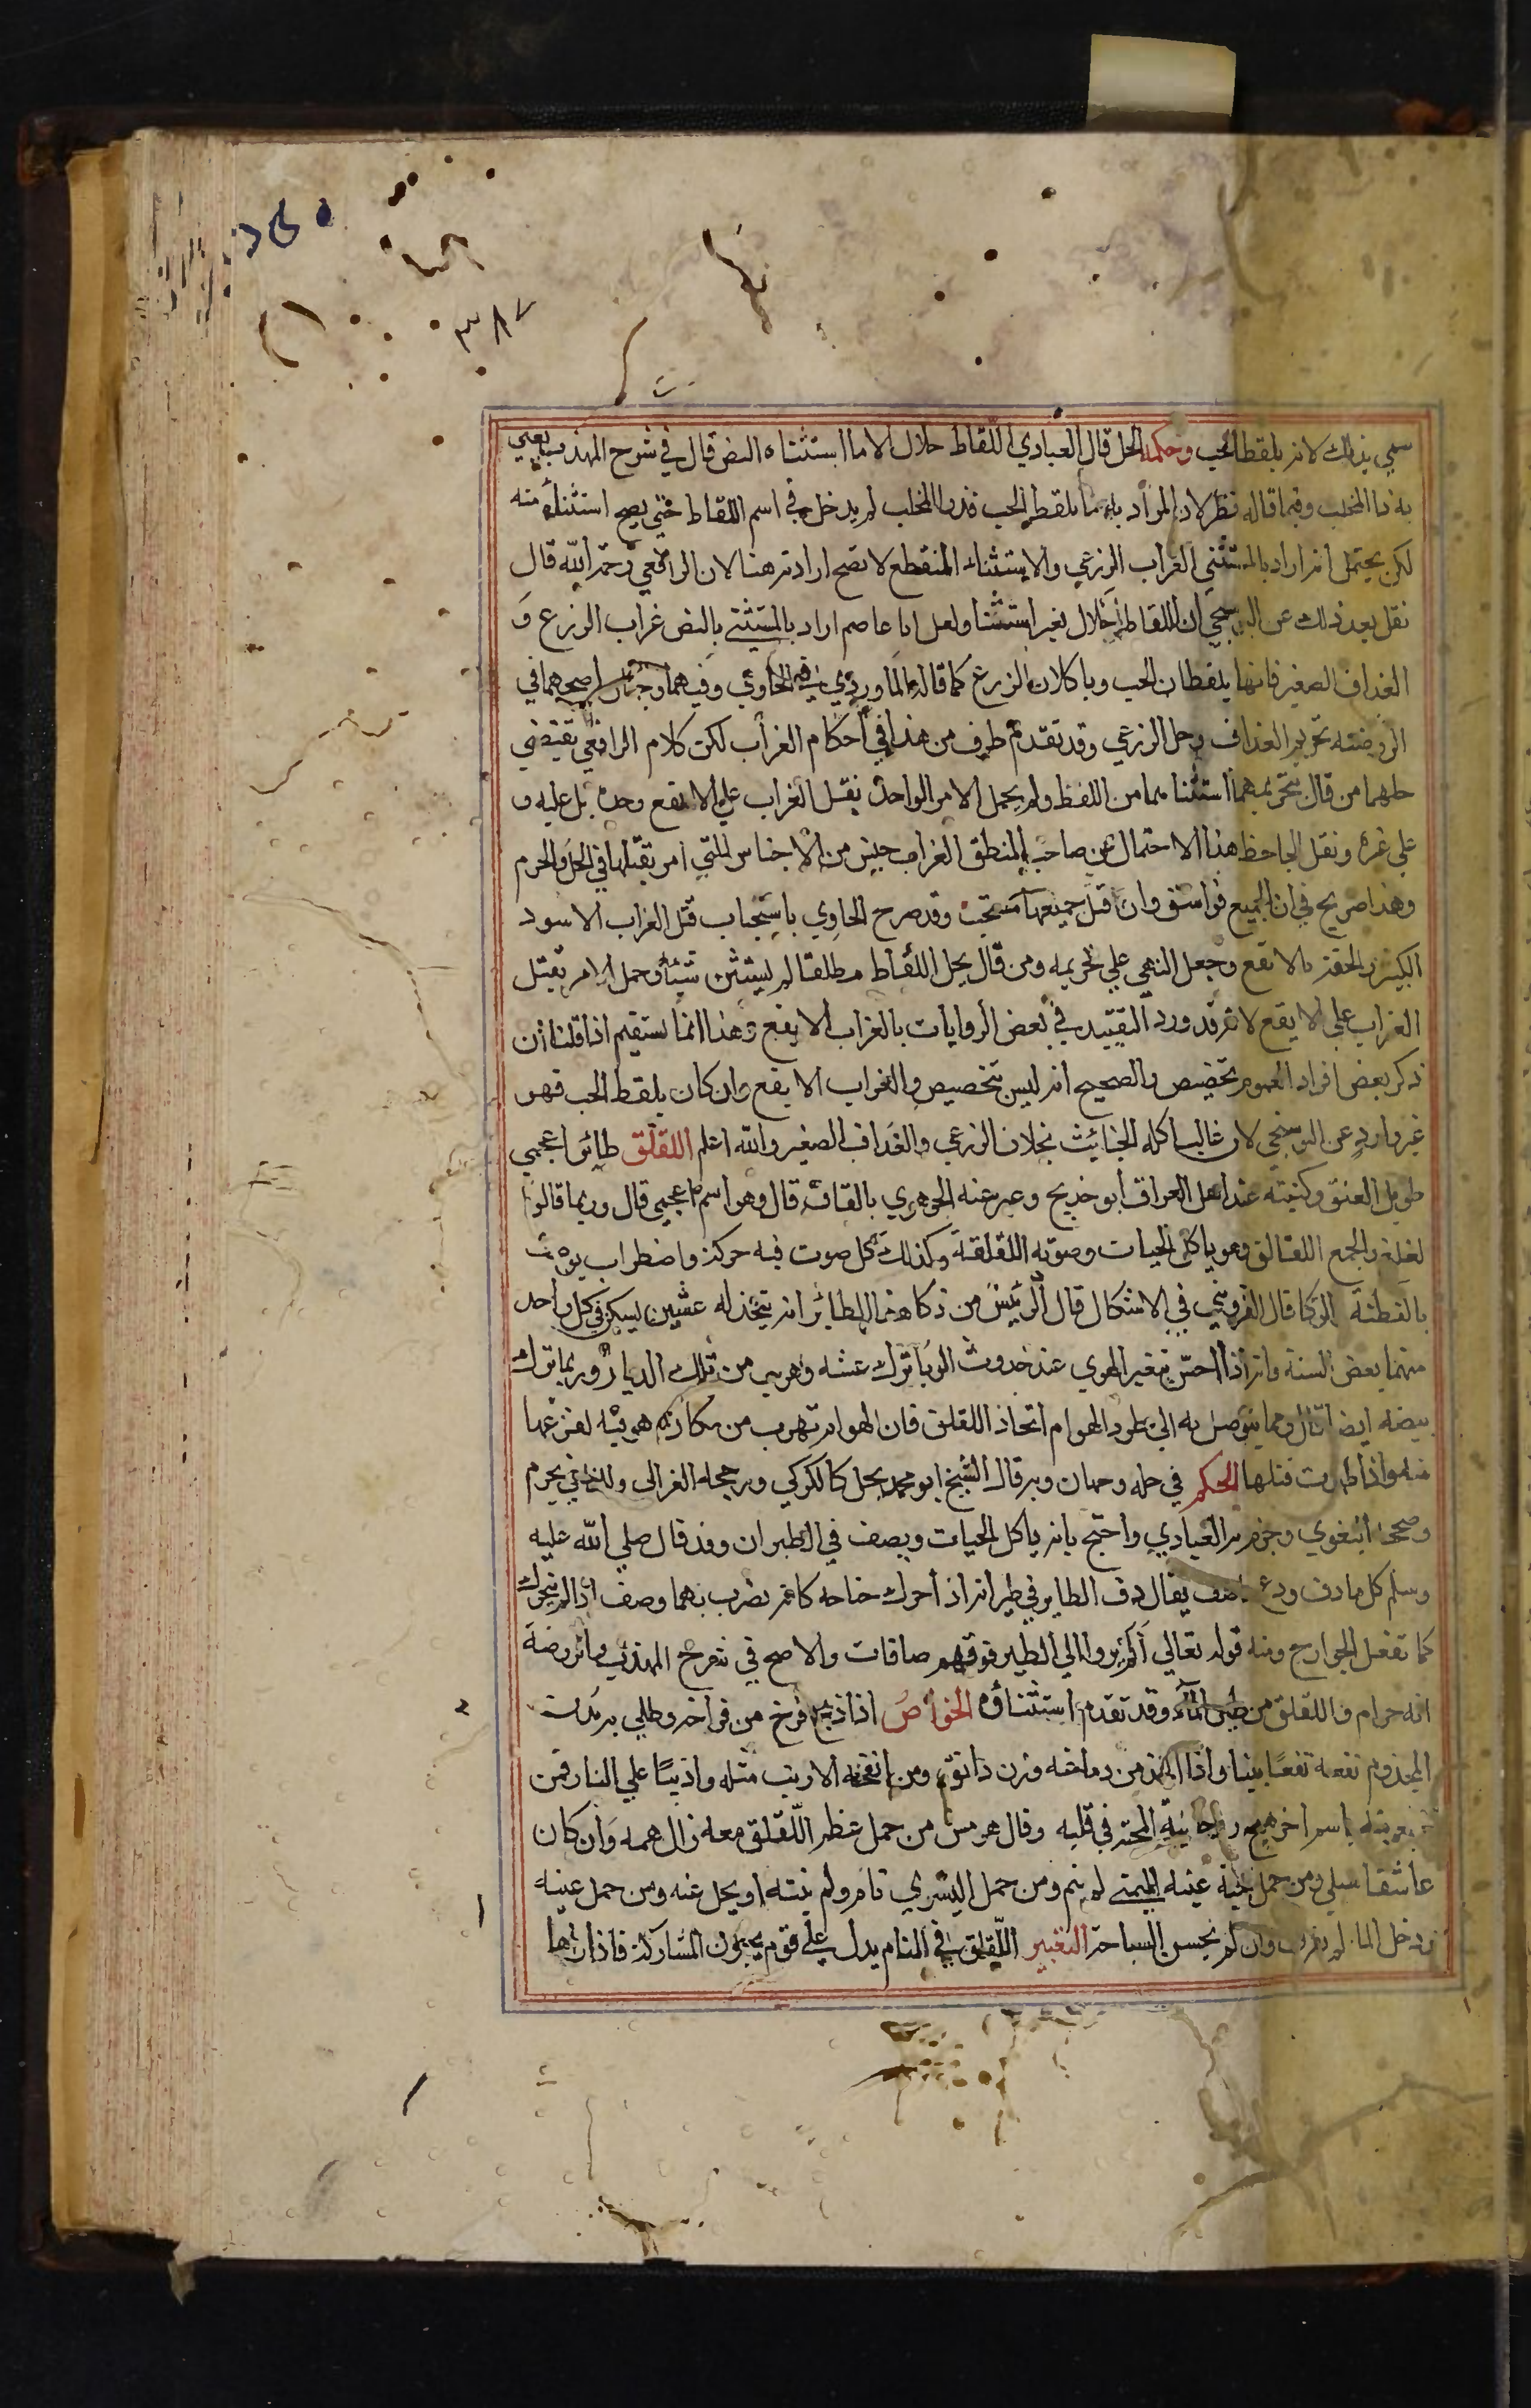 ٣٨٧
سمي بذلك لانه يلقط الحب وحكمه الحل قال العبادي اللقاط حلال الا ما استثناه النص قال في شرح المهذب يعني
به ذا المخلب وفيما قاله نظر لان المراد به ما يلقط الحب فذو المخلب لم يدخل في اسم اللقاط حتي يصح استثناؤه منه
لكن يحتمل انه اراد بالمستثني الغراب الزرعي والاستثناء المنقطع لا تصح ارادته هنا لان الرافعي رحمه الله قال
نقل بعد ذلك عن البوسنجي ان اللقاط حلال بغير استثنا ولعل ابا عاصم اراد بالمستثني بالنص غراب الزرع و
الغداف الصغير فانهما يلقطان الحب وياكلان الزرع كما قاله الماوردي في الحاوي وفيهما وجهان اصحهما في
الروضة تحريم الغداف وحل الزرعي وقد تقدم طرف من هذا في احكام الغراب لكن كلام الرافعي يقتضي
حلهما من قال بتحريمهما استثناهما من اللفظ ولم يحمل الامر الوارد بقتل الغراب علي الابقع وحده بل عليه و
علي غيره ونقل الجاحظ هذا الاحتمال عن صاحب المنطق الغراب جنس من الاجناس التي امر بقتلها في الحل والحرم
وهذا صريح في ان الجميع فواسق وان قتل جميعها مستحب وقد صرح الحاوي باستحباب قتل الغراب الاسود
الكبير والحقه بالابقع وجعل النهي علي تحريمه ومن قال بحل اللقاط مطلقا لم يستثن شيئا وحمل الامر بقتل
الغراب علي الابقع لانه قد ورد التقييد في بعض الروايات بالغراب الابقع وهذا انما يستقيم اذا قلنا ان
ذكر بعض افراد العموم تخصيص والصحيح انه ليس بتخصيص والغراب الابقع وان كان يلقط الحب فهو
غير وارد عن البوسنجي لان غالب اكله الخبائث بخلاف الزرعي والغداف الصغير والله اعلم اللقلق طائر اعجمي
طويل العنق وكنيته عند اهل العراق ابو خديج وعبر عنه الجوهري بالقاف قال وهو اسم اعجمي قال وربما قالوا
لغلغ والجمع اللقالق وهو ياكل الحيات وصوته اللقلقة وكذلك كل صوت فيه حركة واضطراب يوصف
بالفطنة والذكا قال القزويني في الاشكال قال الرئيس من ذكا هذا الطائر انه يتخذ له عشين يسكن في كل واحد
منهما بعض السنة وانه اذا احس بتغير الهوي عند حدوث الوبا ترك عشه وهرب من تلك الديار وربما ترك
بيضه ايضا قال ومما يتوصل به الي طرد الهوام اتخاذ اللقلق فان الهوام تهرب من مكان هو فيه لفزعها
منه واذا ظهرت قتلها الحكم في حله وجهان وبه قال الشيخ ابو محمد يحل كالكركي ورجحه الغزالي والثاني يحرم
وصححه البغوي وجزم به العبادي واحتج بانه ياكل الحيات ويصف في الطيران وقد قال صلي الله عليه
وسلم كل ما دف ودع ما صف يقال دف الطاير في طيرانه اذا حرك جناحه كانه يضرب بهما وصف اذا لم يتحرك
كما تفعل الجوارح ومنه قوله تعالي اولم يروا الي الطير فوقهم صافات والاصح في شرح المهذب والروضة
انه حرام واللقلق من طير الماء وقد تقدم استثناؤه الخواص اذا ذبح فرخ من فراخه وطلي به بدن
المجذوم نفعه نفعا بينا واذا اخذ من دماغه وزن دانق ومن انفحة الارنب مثله واذيبا علي النار فمن
باسم اخر هيج روحانية المحبة في قلبه وقال هرمس من حمل عظم اللقلق معه زال همه وان كان
عاشقا سلي ومن حمل حبة عينه اليمني لم ينم ومن حمل اليسري نام ولم ينتبه او يحل عنه ومن حمل عينه
ودخل الما لم يغرق وان لم يحسن السباحة التعبير اللقلق في المنام يدل علي قوم يحبون المشاركة فاذا راها